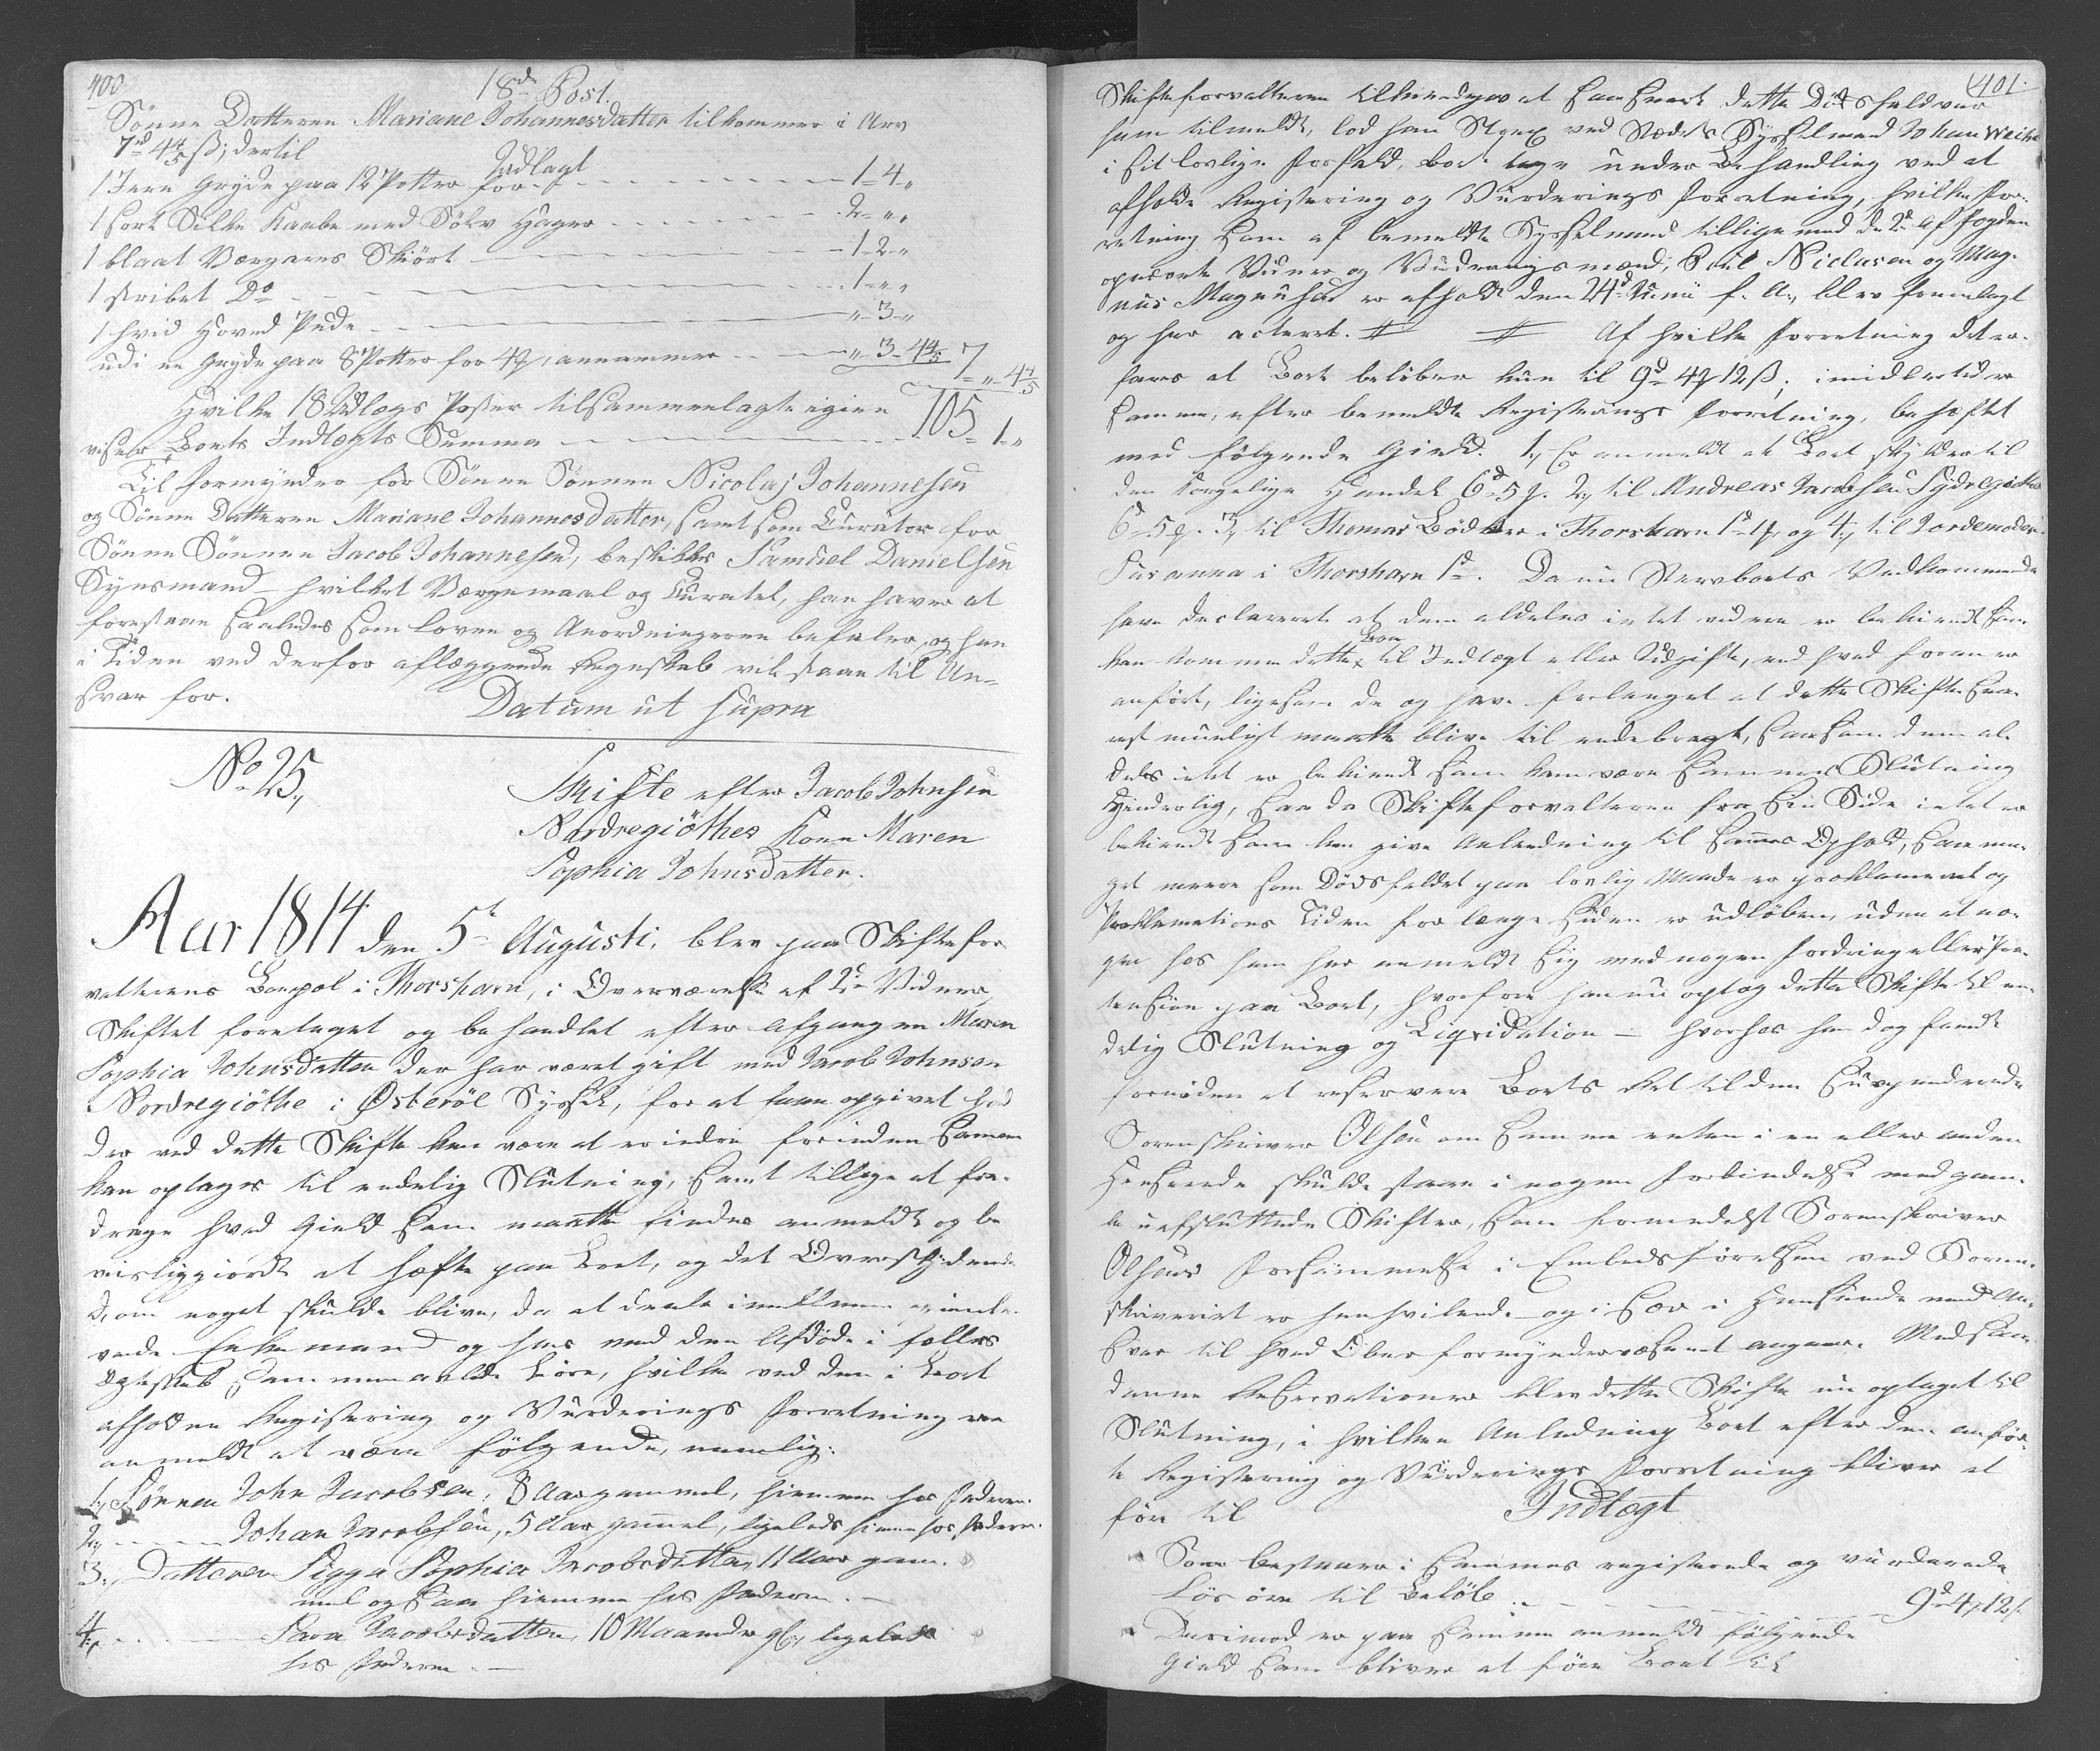 400.
18de Post.
Sönne Datteren Mariane Johannesdatter tilkommer i Arv
7rd 4 4/5 ß; dertil
Udlagt
1 Jern Gryde paa 12 Potter for 1 - 4 "
1 sort Silke Kaabe med Sölv Hager 2 - " "
1 blaat Vergarns Skiört 1 - 2 - "
1 stribet Do 1 - " "
1 hvid Hoved Pude " - 3 - "
udi en Gryde paa 8 Potter for 4 , annammer " - 3 - 4 4/5 7 - " 4 4/5
Hvilke 18 Udlægs Poster tilsammenlagte igien
viser Boets Indtægts Summa 105 - 1 - "
Til Formynder for Sönne Sönnen Nicolaj Johannesen
og Sönne Datteren Mariane Johannesdatter, samt som Curator for
Sönne Sönnen Jacob Johannesen, beskikkes Samuel Danielsen
Kynsmand - hvilket Værgemaal og Curatel, han haver at
forestaae saaledes som Loven og Anordningerne befaler, og han
i Tiden ved derfor aflæggende Regnskab vil staae til An-
svar for.
Datum ut supra
No 25.,
Skifte efter Jacob Johnsen
Nordregiöthes Kone Maren
Sophia Johnsdatter.
Aar 1814 den 5te Augusti, blev paa Skiftefor-
valterens Bopæl i Thorshavn, i Overværelse af 2de Vidner,
Skiftet foretaget og behandlet efter afgangne Maren
Sophia Johnsdatter der har været gift med Jacob Johnsen
Nordregiöthe i Österöe Syssel, for at faae opgivet hvad
der ved dette Skifte kan være at erindre forinden samme
kan optages til endelig Slutning, samt tillige at fra-
drage hvad Gield som maatte findes anmeldt og be
viisliggiordt at hæfte paa Boet, og det Overskydende
d, om noget skulde blive, da at deele imellem igienle-
vende Enkemand og hans med den Afdöde i fælles
Ægteskab sammenavlede Börn, hvilke ved den i Boet
afholdne Registering og Vurderings Forretning ere
anmeldt at være fölgende, nemlig:
1, Sönnen John Jacobsen, 8 Aar gammel, hiemme hos Faderen.
2, Johan Jacobsen, 5 Aar gammel, ligeleds hiemme hos Faderen.
3., Datteren Sigga Sophia Jacobsdatter, 11 Aar gam-
mel ogsaa hiemme hos Faderen.
4., Sara Jacobsdatter, 10 Maaneder gl., ligeleds
hos Faderen.
401.
Skifteforvalteren tilkiendegav at saasnart dette Dödsfald var
ham tilmeldt, lod han Strax ved Stedets Sysselmand Johan Weihe
i Sit lovlige Forfald, Boet tage under Behandling ved at
afholde Registering og Vurderings Forretning, hvilken For-
retning som af bemeldte Sysselmand tillige med de 2de af Fogden
opnævnte Vidner og Vurderingsmænd, Poul Niclasen og Mag-
nus Magnussen er afholdt den 24de Junii f. A., blev fremlagt
og her acteret. # # Af hvilken Forretning det er-
fares at Boet belöber kun til 9rd 4 12 ß; imidlertid er
samme, efter bemeldte Registerings Forretning, behæftet
med fölgende Gield: 1, Er anmeldt at Boet skylder til
den Kongelige Handel 6rd 5 . 2, til Andreas Jacobsen Sydregiöthe
6rd 5 . 3, til Thomas Bödker i Thorshavn 1rd 1 , og 4., til Jordemoder
Susanna i Thorshavn 1rd. Da nu Stervboets Vedkommende
have declareret at dem aldeles intet videre er bekiendt som
kan komme dette Boe til Indtægt eller Udgift, end hvad foran er
anfört, ligesom de og have forlanget at dette Skifte snar-
est mueligt maatte blive til endebragt, saasom dem al-
deles intet er bekiendt som kan være sammes Slutning
hinderlig, saa da Skifteforvalteren fra Sin Side intet er
bekiendt som kan give Anledning til sammes Ophold, saa me-
get meere som Dödsfaldet paa lovlig Maade er proklameret og
Proklamations Tiden for længe siden er udlöben, uden at no-
gen hos ham har anmeldt sig med nogen Fordring eller Præ-
tension paa Boet, hvorfore han nu optog dette Skifte til en-
delig Slutning og Liqvidation - hvorhos han dog fandt
fornöden at reservere Boets Ret til den Suspenderede
Sorenskriver Olsen om samme enten i en eller anden
Henseende skulde staae i nogen Forbindelse med gam-
le uafsluttede Skifter, som formedelst Sorenskriver
Olsens Forsömmelse i Embedsförelsen ved Soren-
skriveriet er henhvilende og især i Henseende med An-
svar til hvad Over formyndervæsenet angaaer. Med saa-
danne Reservationer blev dette Skifte nu optaget til
Slutning, i hvilken Anledning Boet efter den anför-
te Registering og Vurderings Forretning bliver at
före til Indtægt
Som bestaaer i sammes registerede og vurderede
Lösöre til Belöb 9rd 4 12 ß
Derimod er paa samme anmeldt fölgende
Gield som bliver at före Boet til